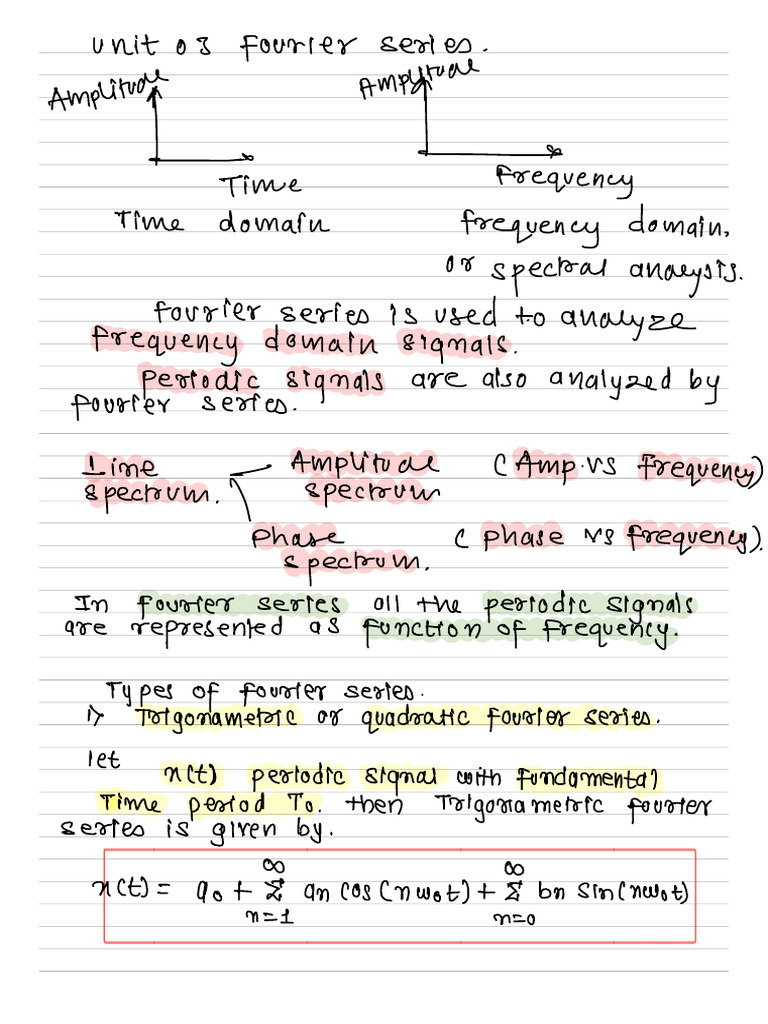 Unit 03 Fourier series.
Amplitude
Amplitude
Time
Frequency
Time domain
frequency domain,
or spectral analysis.
fourier series is used to analyze
frequency domain signals.
Periodic signals are also analyzed by
fourier series.
Line Amplitude (Amp. vs Frequency)
spectrum. spectrum
Phase (phase vs frequency).
spectrum.
In fourier series all the periodic signals
are represented as function of frequency.
Types of fourier series.
1> Trigonametric or quadratic fourier series.
let
x(t) periodic signal with fundamental
Time period To. then Trigonametric fourier
series is given by.
∞ ∞
x(t) = a₀ + Σ an cos(nω₀t) + Σ bn sin(nω₀t)
n=1 n=0